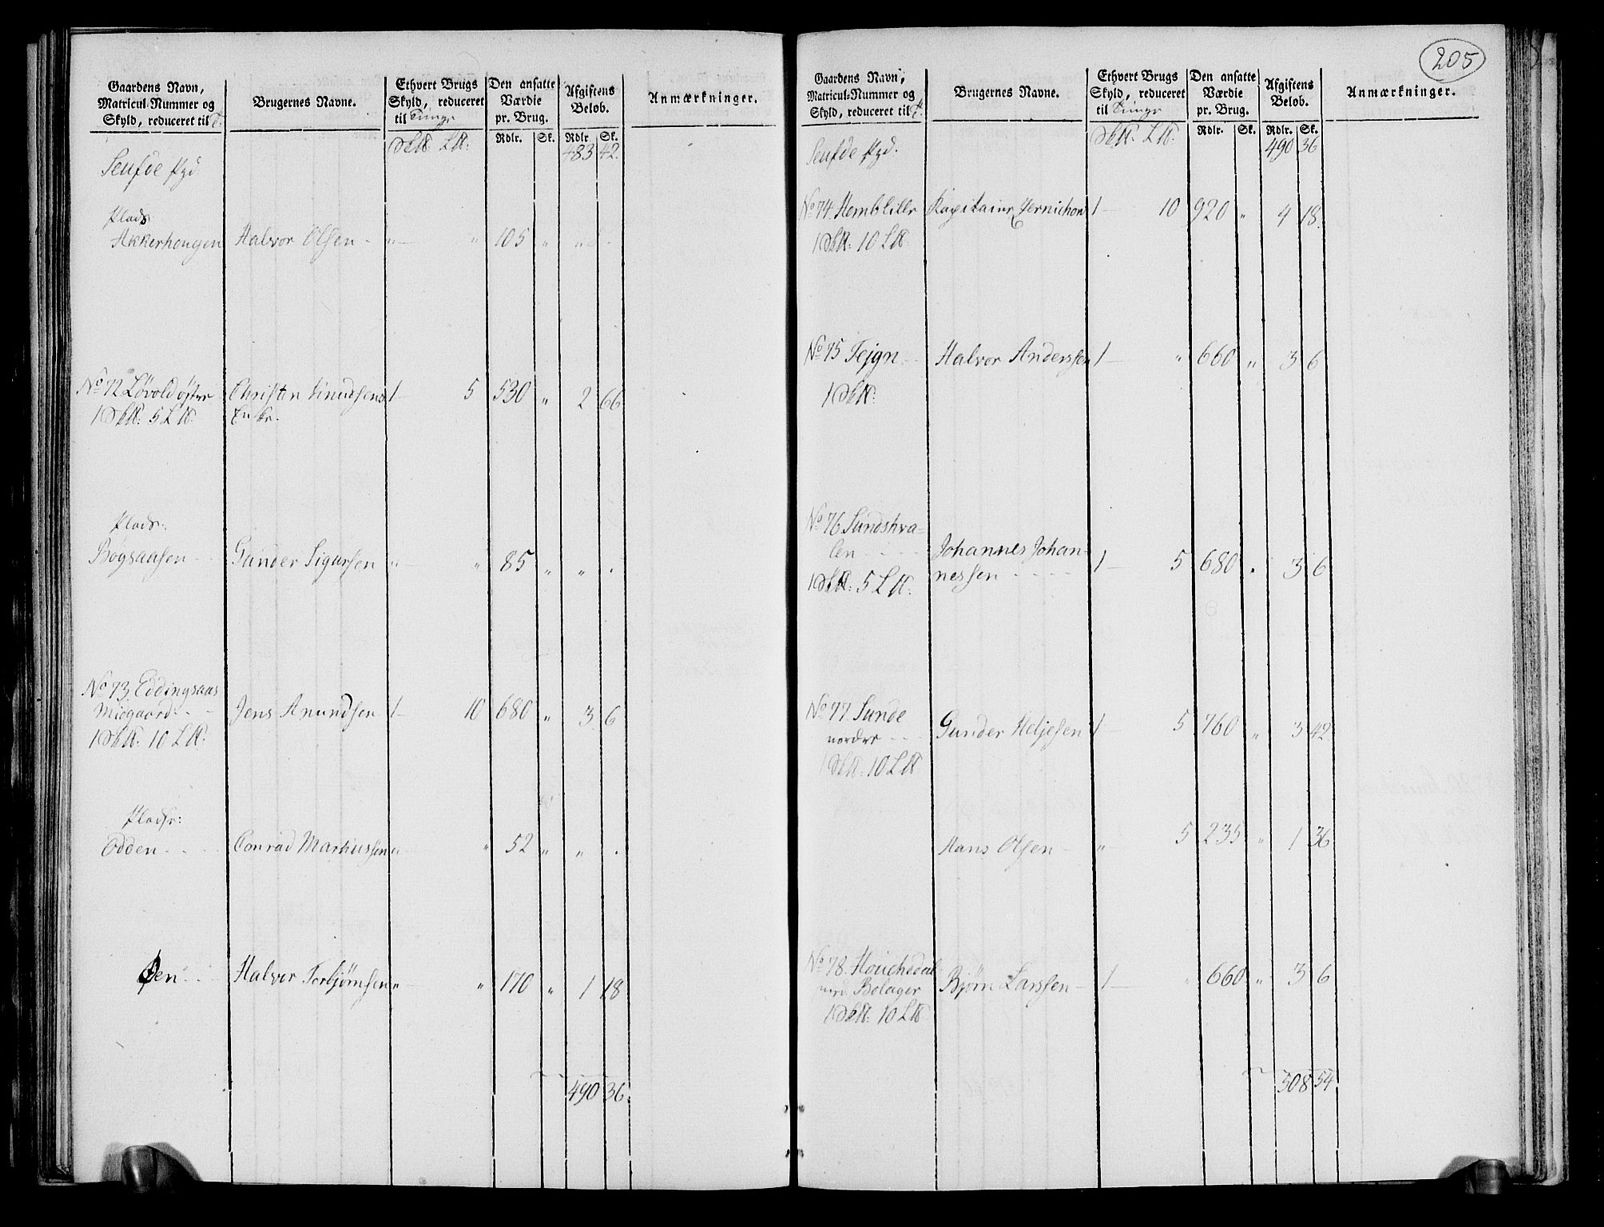 205
Gaardens Navn,
Matricul-Nummer og
Skyld, reduceret til
Brugernes Navne.
Ethvert Brugs
Skyld, reduceret
til Tunge
Den ansatte
Værdie
pr. Brug.
Afgiftens
Beløb.
Anmærkninger.
Rdlr. Sk. Rdlr. Sk.
483 42.
Seufde
Plads
Akkerhougen Halvor Olsen - " " 105 " " "
No 72 Løvold østre Christen Knudsens 1 5 530 " 2 66
Enke.
Plads:
Bøgsaasen Gunder Sigursen " " 85 " " .
No 73. Eddingsaas
Midgaard Jens Anundsen 1 10 680 " 3 6
Pladse:
Edden Conrad Markussen " " 52 " " .
Øen Halvor Torbjørnsen " " 170 " 1 18
490 36.
Gaardens Navn,
Matricul-Nummer og
Skyld, reduceret til
Brugernes Navne.
Ethvert Brugs
Skyld, reduceret
til Tunge
Den ansatte
Værdie
pr. Brug.
Afgiftens
Beløb.
Anmærkninger.
Rdlr. Sk. Rdlr. Sk.
490 36
Seufde
No 74. Homblille Kapitaine Jernichon 1 10 920 " 4 18.
No 75 Tejgn Halvor Anderssen 1 " 660 " 3 6
No 76 Sundskva-
len Johannes Johan-
nessen 1 5 680 " 3 6
No 77. Sunde
nordre Gunder Heljesen 1 5 760 " 3 42
Hans Olsen " 5 235 " 1 36
No 78. Houchedal
Bolager Bjørn Larssen 1 " 660 " 3 6
508 54